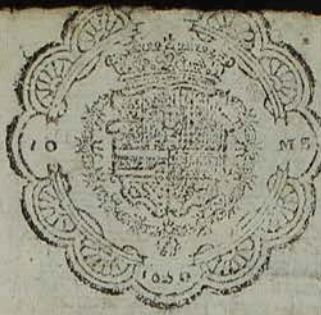 10 MS
1650